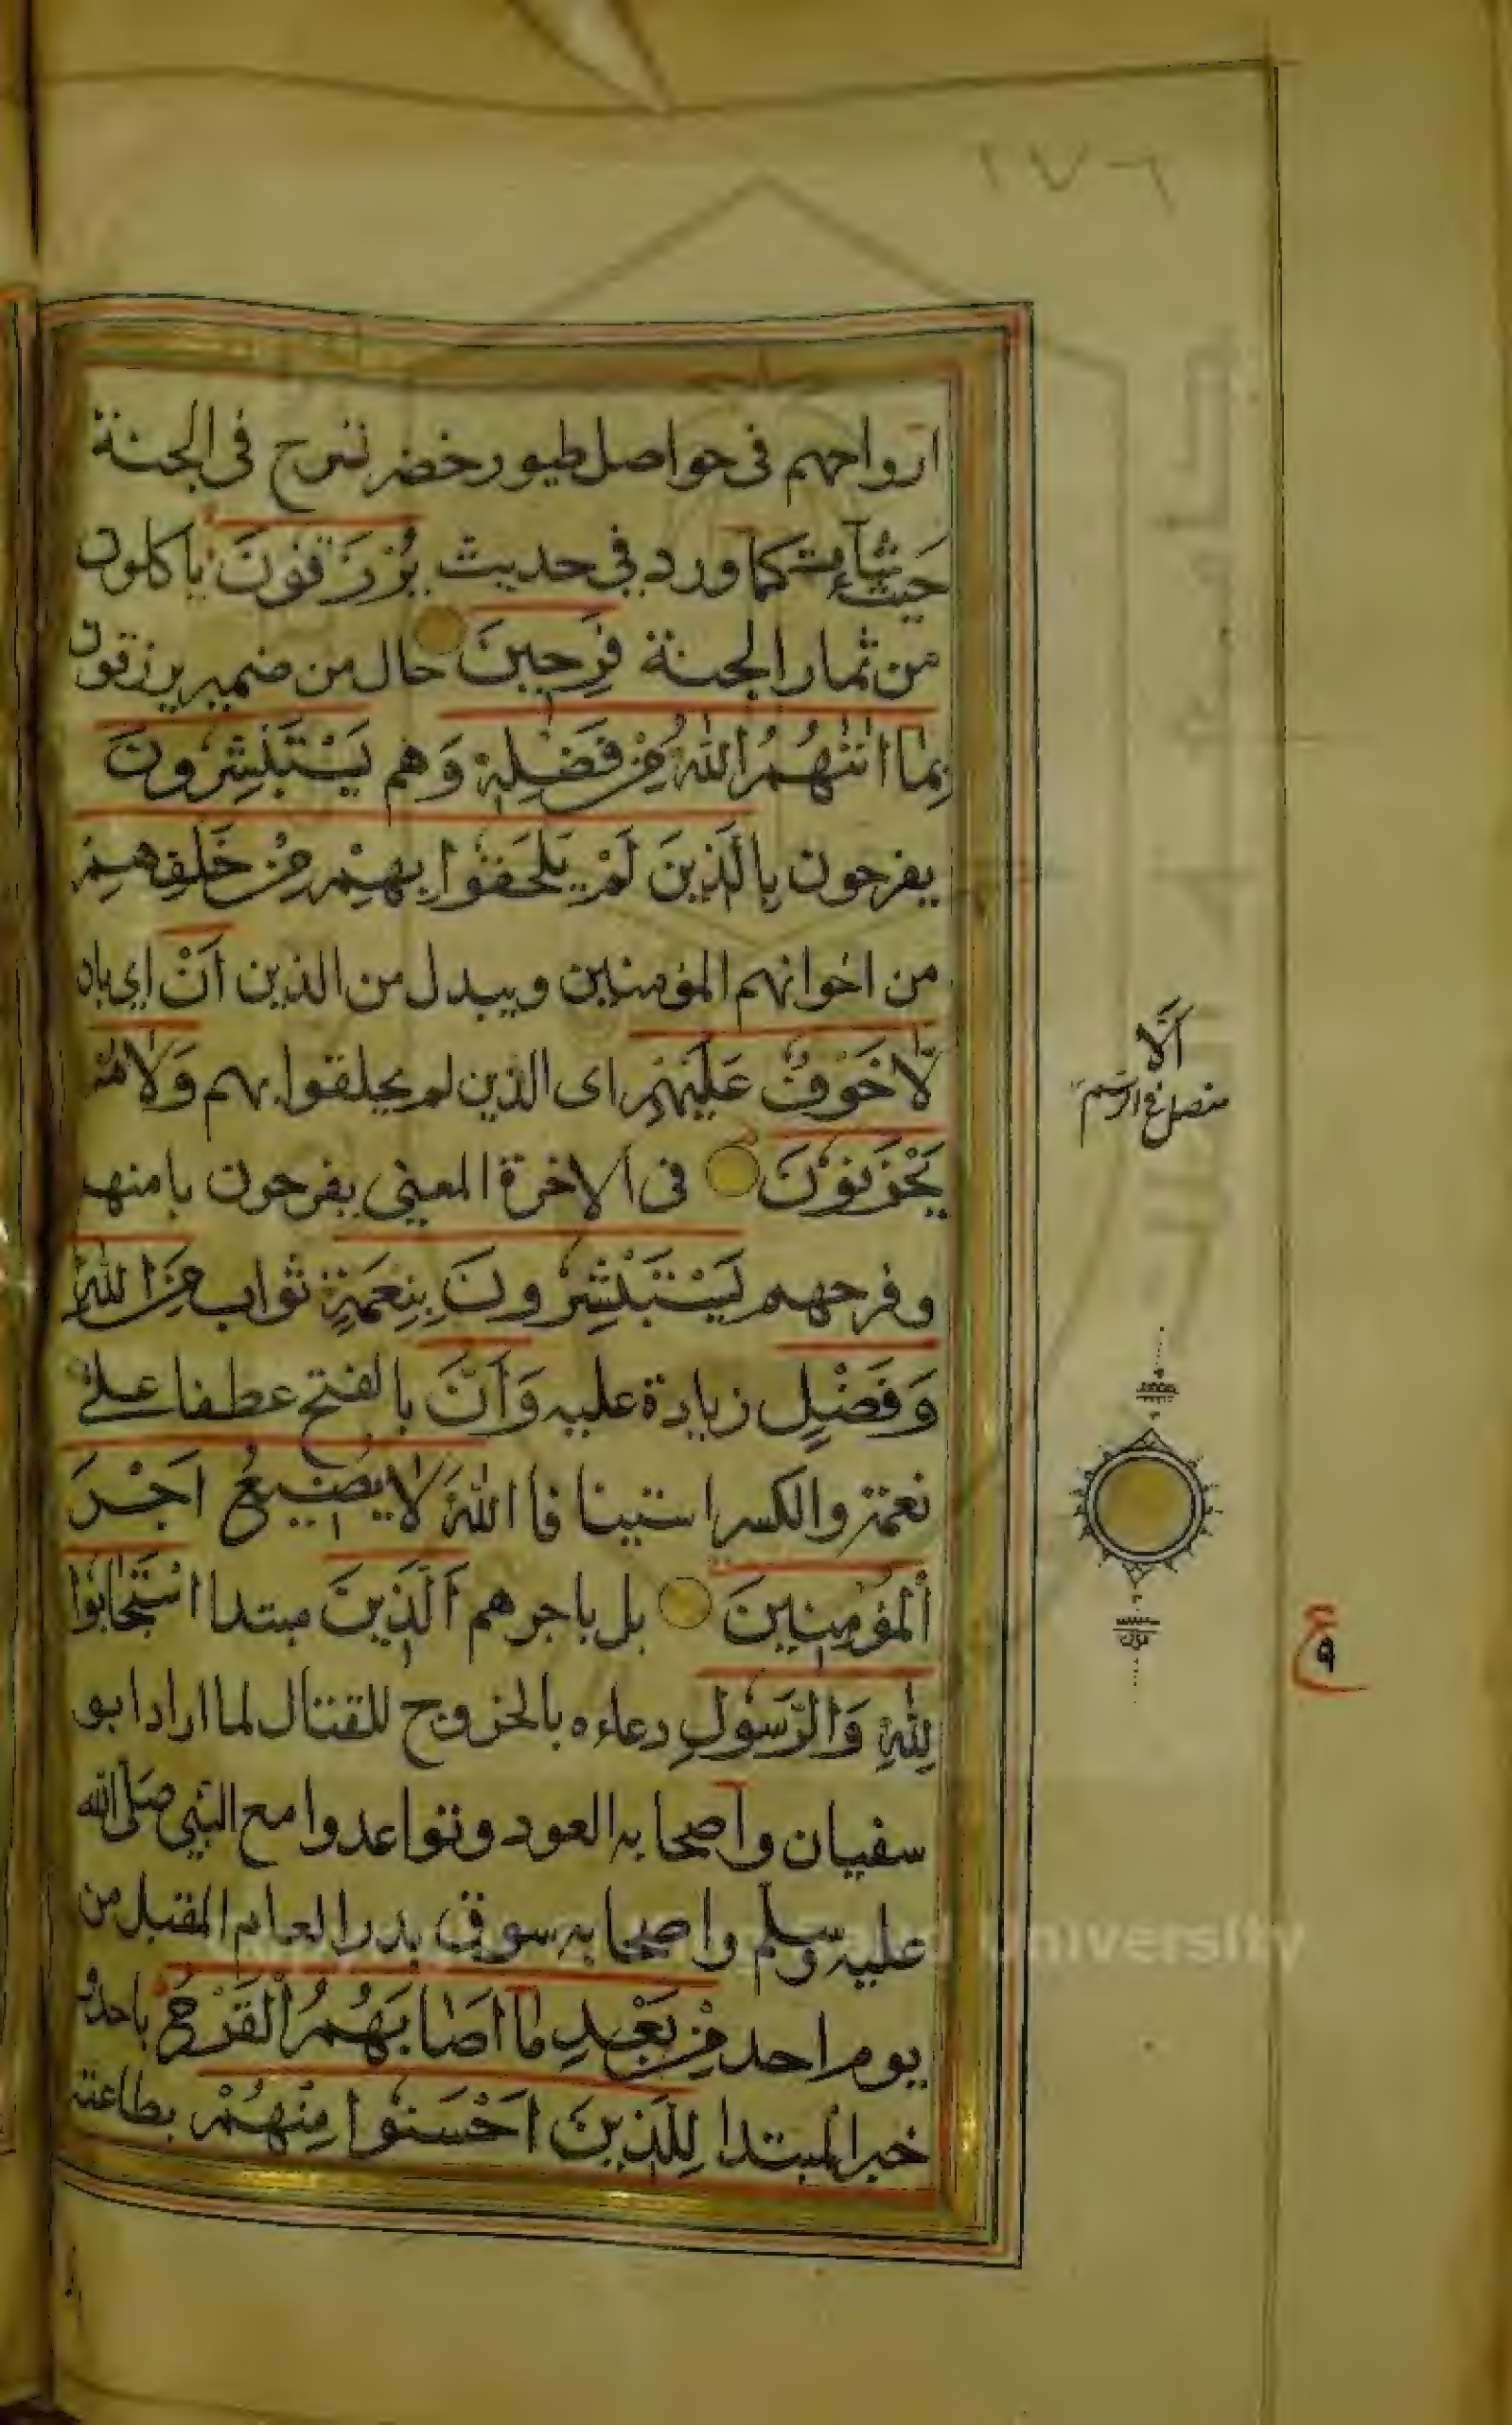 ٢٧٦
ارواحهم فى حواصل طيور خضر تسرح فى الجنة
حَيث شآءت كما ورد فى حديث يُرْزَقُونَ ياكلون
من ثمار الجنة فَرِحِينَ حال من ضمير يرزقون
بِمَا اٰتٰىهُمُ اللّٰهُ مِنْ فَضْلِهٖ وَهم يَسْتَبْشِرُونَ
يفرحون بِالَّذِينَ لَمْ يَلْحَقُوا بِهِمْ مِنْ خَلْفِهِمْ
من اخوانهم المؤمنين ويبدل من الذين اَنْ اى بان
لَّا خَوْفٌ عَلَيْهِمْ اى الذين لم يحلقوا بهم وَلَا هُمْ
يَحْزَنُوْنَ فى الاخرة المعنى يفرحون بامنهم
وفرحهم يَسْتَبْشِرُونَ بِنِعْمَةٍ ثواب مِنَ اللّٰهِ
وَفَضْلٍ زيادة عليه وَاَنَّ بالفتح عطفا على
نعمة والكسر استينافا اللّٰهَ لَا يُضِيعُ اَجْرَ
الْمُؤْمِنِينَ بل ياجرهم اَلَّذِينَ مبتدا اسْتَجَابُوا
لِلّٰهِ وَالرَّسُولِ دعاءه بالخروج للقتال لما اراد ابو
سفيان واصحابه العود وتواعدوا مع النبى صلى الله
عليه وسلم واصحابه سوق بدر العام المقبل من
يوم احد مِنْ بَعْدِ مَا اَصَابَهُمُ الْقَرْحُ باحد و
خبر المبتدا لِلَّذِينَ اَحْسَنُوا مِنْهُمْ بطاعته
اَلَّا
منفصل فى الرسم
ع
٩
University